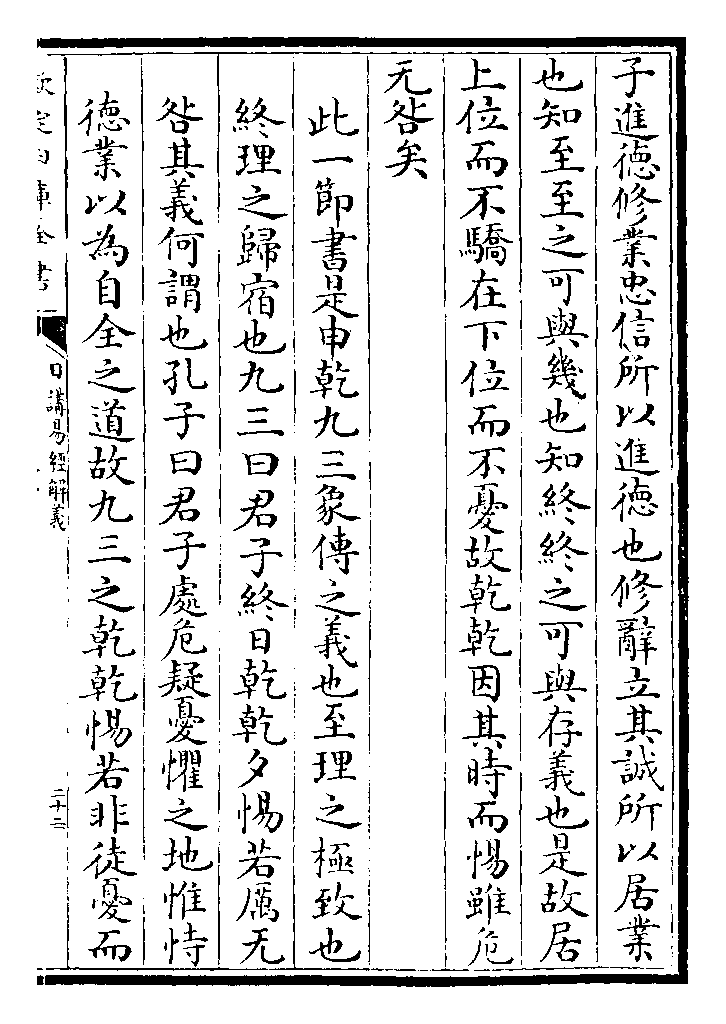 子進德修業忠信所以進德也修辭立其誠所以居業
也知至至之可與幾也知終終之可與存義也是故居
上位而不驕在下位而不憂故乾乾因其時而惕雖危
无咎矣
此一節書是申乾九三象傳之義也至理之極致也
終理之歸宿也九三曰君子終日乾乾夕惕若厲无
咎其義何謂也孔子曰君子處危疑憂懼之地惟恃
德業以為自全之道故九三之乾乾惕若非徒憂而
欽定四庫全書
日講易經解義
二十二